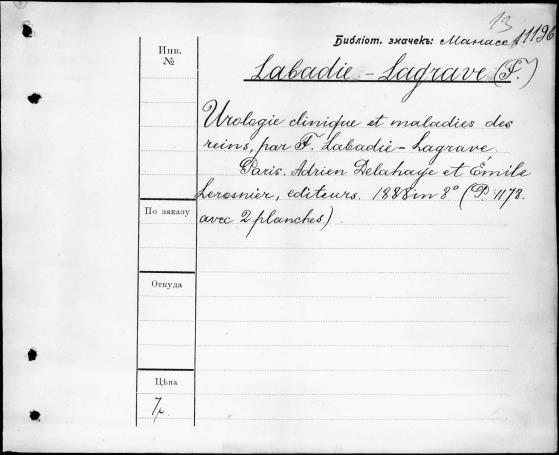 13
Библіот. значекъ: Манасс. 11126
Инв.
№
Labadie-Lagrave (F.)
Urologie clinique et maladies des
reins, par F. Labadie-Lagrave.
Paris. Adrien Delahaye et Émile
Lerosnier, editeurs. 1888 in 8° (P. 1178.
avec 2 planches.)
По заказу
Откуда
Цѣна
7р.